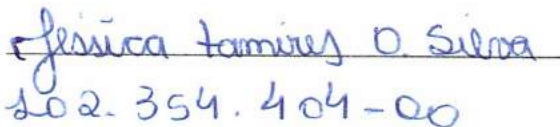 Jessica Tamires O. Silva
102.354.404-00